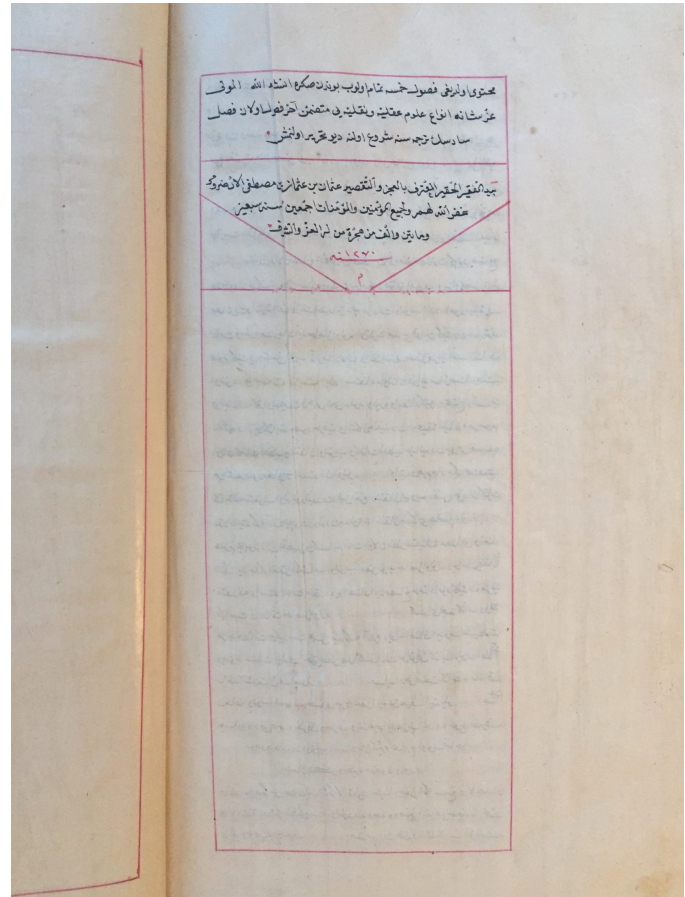 محتوى اولديغى فصول خمسه تمام اولوب بوندن صكره انشاء الله المولى
عز شانه انواع علوم عقليه ونقليه يى متضمن آخر فصول اولان فصل
سادسك ترجمه سنه شروع اولنه ديو تحرير اولنمش
بيد الفقير الحقير المعترف بالعجز والتقصير عثمان بن عثمان بن مصطفى الارضرومى
غفر الله لهم ولجميع المؤمنين والمؤمنات اجمعين سنه سبعين
ومايتين والف من هجرة من له العز والشرف
سنه ١٢٧٠
م